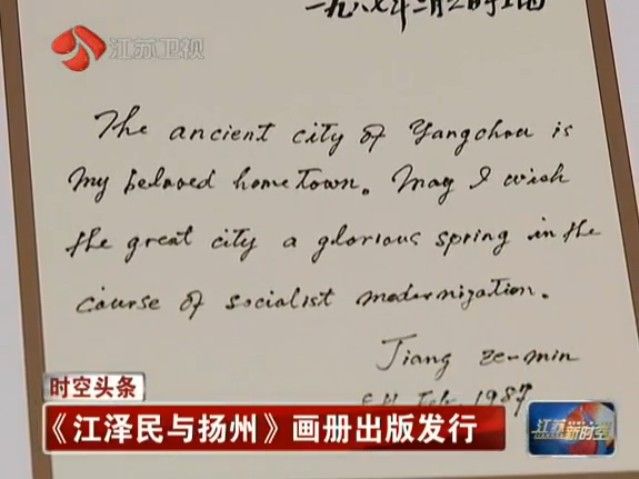 江苏卫视
The ancient city of Yangchou is
my beloved hometown. May I wish
the great city a glorious spring in the
course of socialist modernization.
Jiang Ze-min
Feb. 1987
时空头条
《江泽民与扬州》画册出版发行
江苏
新时空